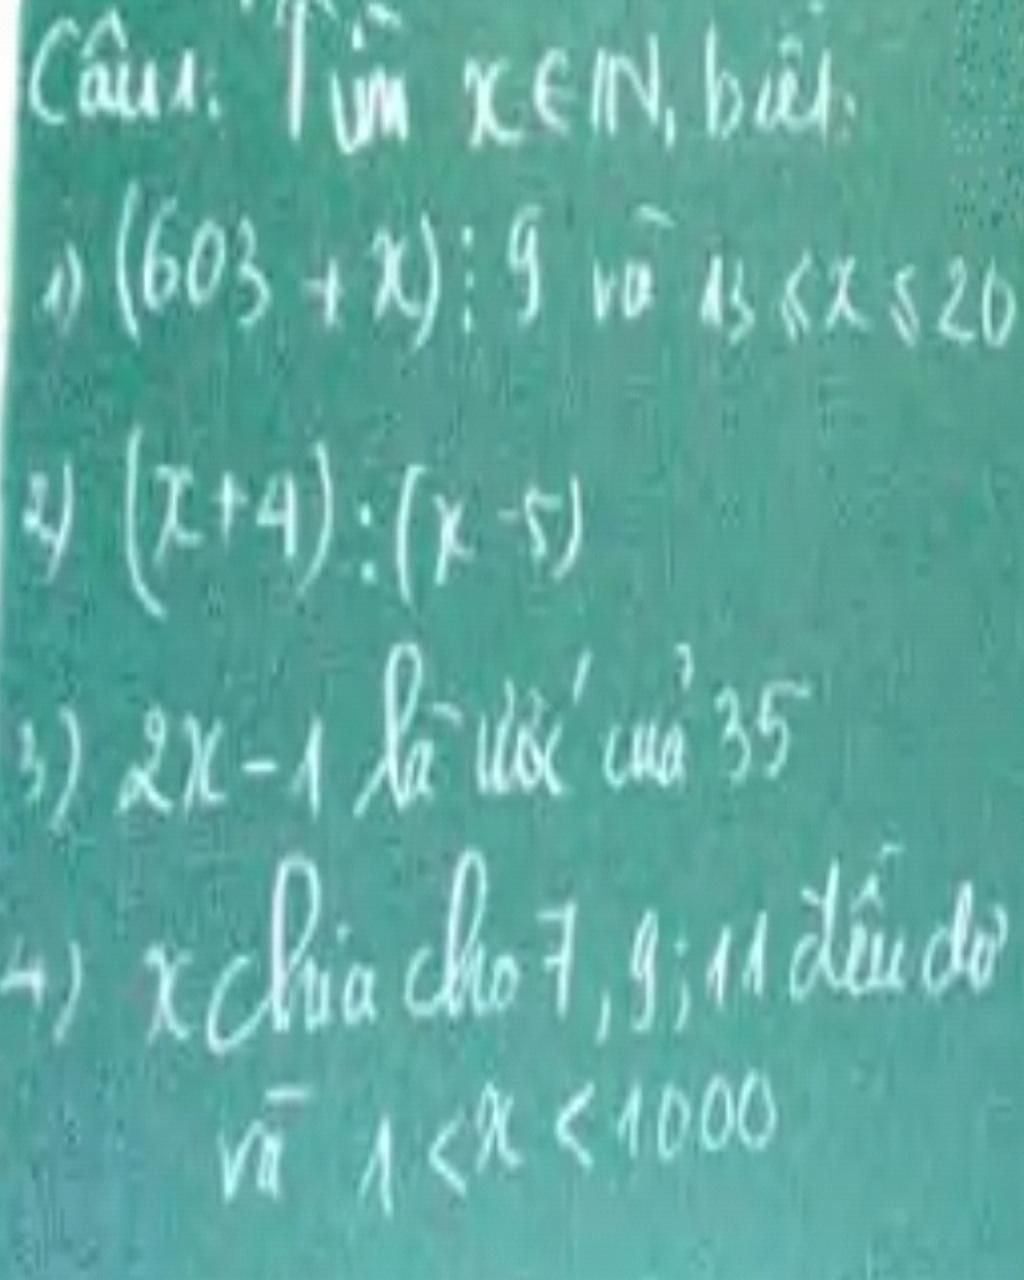 Câu 1: Tìm x ∈ ℕ, biết:
1) (603 + x) ⋮ 9 và 13 ≤ x ≤ 20
2) (x+4) ⋮ (x-5)
3) 2x-1 là ước của 35
4) x chia cho 7, 9; 11 đều dư
và 1 < x < 1000